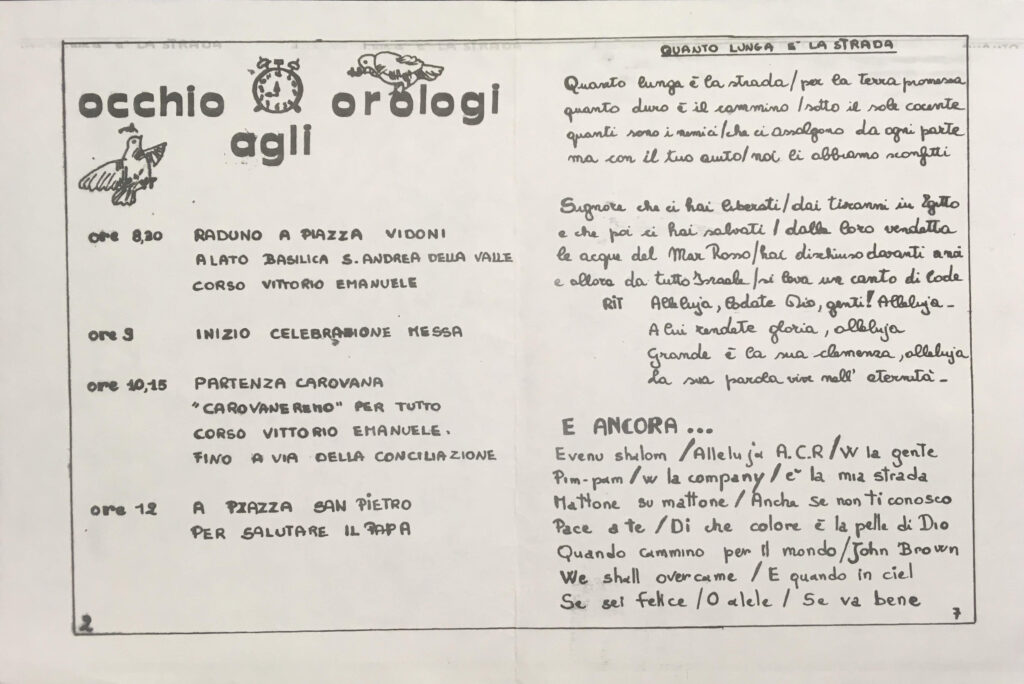 occhio orologi
agli
ore 8,30 RADUNO A PIAZZA VIDONI
A LATO BASILICA S. ANDREA DELLA VALLE
CORSO VITTORIO EMANUELE
ore 9 INIZIO CELEBRAZIONE MESSA
ore 10,15 PARTENZA CAROVANA
"CAROVANEREMO" PER TUTTO
CORSO VITTORIO EMANUELE.
FINO A VIA DELLA CONCILIAZIONE
ore 12 A PIAZZA SAN PIETRO
PER SALUTARE IL PAPA
2
QUANTO LUNGA E' LA STRADA
Quanto lunga è la strada/per la terra promessa
quanto duro è il cammino/sotto il sole cocente
quanti sono i nemici/che ci assalgono da ogni parte
ma con il tuo aiuto/noi li abbiamo sconfitti
Signore che ci hai liberati/dai tiranni in Egitto
e che poi ci hai salvati/dalla loro vendetta
le acque del Mar Rosso/hai dischiuso davanti a noi
e allora da tutto Israele/si leva un canto di lode
RIT Alleluja, lodate Dio, genti! Alleluja-
A lui rendete gloria, alleluja
Grande è la sua clemenza, alleluja
La sua parola vive nell'eternità-
E ANCORA ...
Evenu shalom / Alleluja A.C.R / W la gente
Pim-pam / w la company / e' la mia strada
Mattone su mattone / Anche se non ti conosco
Pace a te / Di che colore è la pelle di Dio
Quando cammino per il mondo/John Brown
We shall overcame / E quando in ciel
Se sei felice / O alele / Se va bene
7